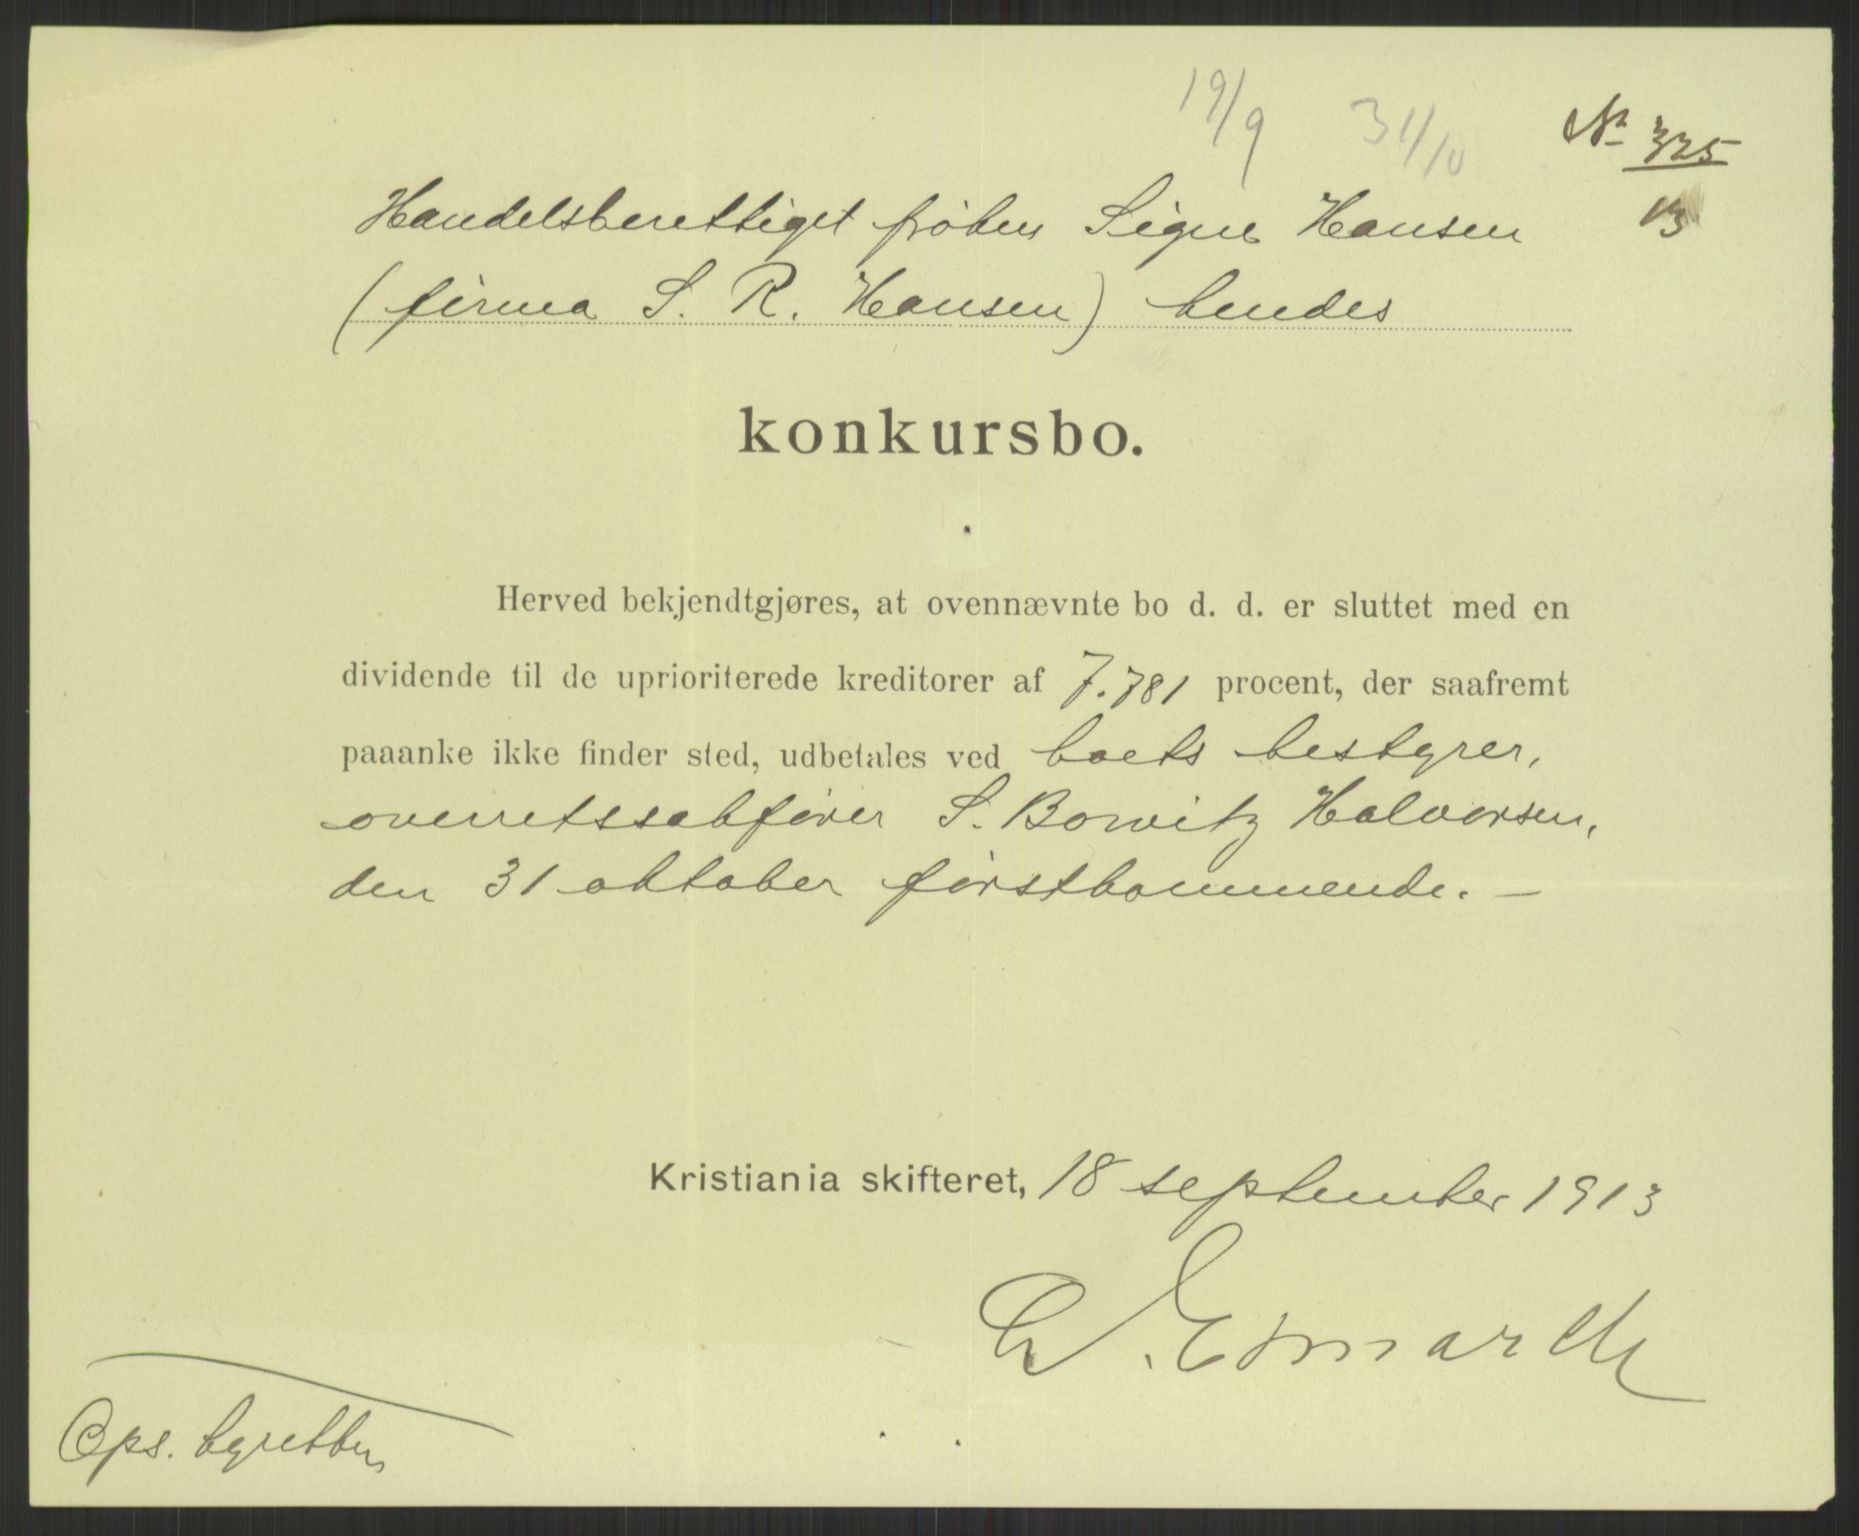 19/9 31/10 No 325
13
Handelsberettiget frøken Signe Hansen
(firma S. R. Hansen) hendes
konkursbo.
Herved bekjendtgjøres, at ovennævnte bo d. d. er sluttet med en
dividende til de uprioriterede kreditorer af 7.781 procent, der saafremt
paaanke ikke finder sted, udbetales ved boets bestyrer,
overretssakfører S. Borwitz Halvorsen,
den 31 oktober førstkommende. —
Kristiania skifteret, 18 september 1913
Ops. byretten